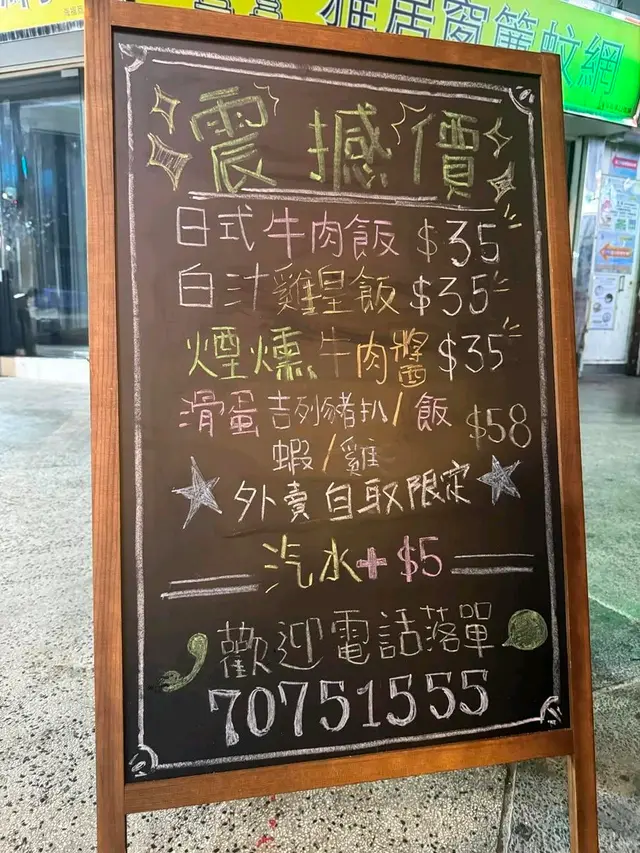 雅居窗簾蚊網
震撼價
日式牛肉飯 $35
白汁雞皇飯 $35
煙燻牛肉醬 $35
滑蛋吉列豬扒/飯 $58
蝦/雞
外賣自取限定
汽水+$5
歡迎電話落單
70751555